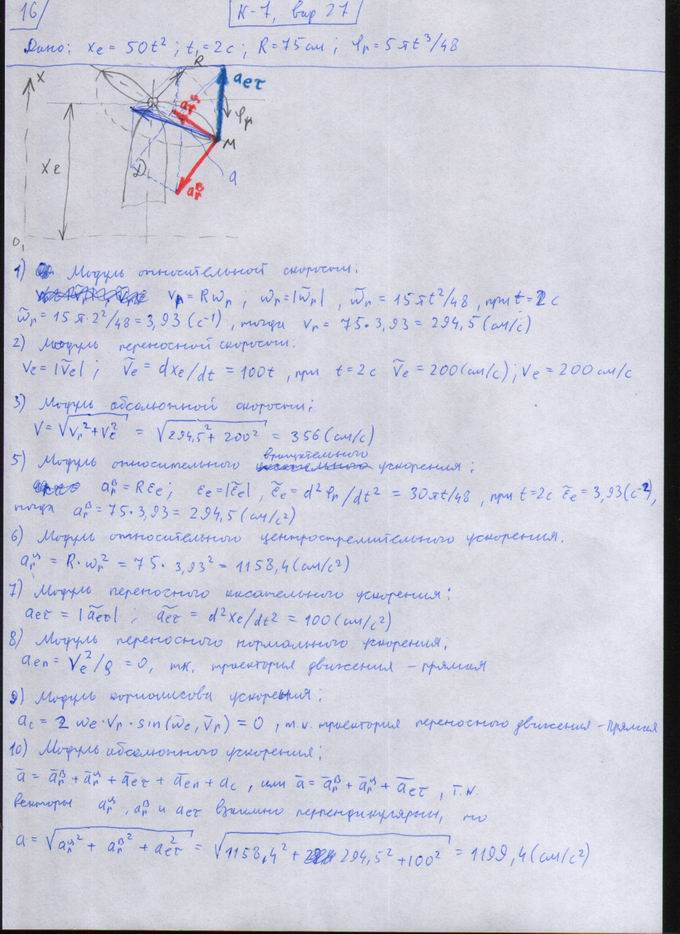 16
К-7, вар 27
Дано: xe = 50t²; t₁=2c; R=75см; φr=5πt³/48
x
R
aeτ
arц
φr
M
xe
D
a
arв
O₁
1) Модуль относительной скорости:
vr = Rωr; ωr=|ω̃r|, ω̃r = 15πt²/48, при t=2c
ω̃r=15π·2²/48=3,93(с⁻¹), тогда vr = 75·3,93=294,5(см/с)
2) Модуль переносной скорости:
ve=|ṽe|; ṽe = dxe/dt = 100t, при t=2c ṽe=200(см/с); ve=200см/с
3) Модуль абсолютной скорости;
V=√vr²+ve² = √294,5²+200² = 356(см/с)
5) Модуль относительного вращательного ускорения;
arв=Rεe; εe=|ε̃e|, ε̃e=d²φr/dt²=30πt/48, при t=2c ε̃e=3,93(с⁻²),
тогда arв=75·3,93=294,5(см/с²)
6) Модуль относительного центростремительного ускорения.
arц=R·ωr²=75·3,93²=1158,4(см/с²)
7) Модуль переносного касательного ускорения:
aeτ=|ãeτ|; ãeτ=d²xe/dt²=100(см/с²)
8) Модуль переносного нормального ускорения,
aen=Ve²/ρ=0, т.к. траектория движения - прямая
9) Модуль кориолисова ускорения;
ac=2ωe·Vr·sin(ω̄e,V̄r)=0, т.к. траектория переносного движения-прямая
10) Модуль абсолютного ускорения;
ā=ārв+ārц+āeτ+āen+ac, или ā=ārв+ārц+āeτ, т.к.
векторы arц, arв и aeτ взаимно перпендикулярны, то
a=√arц²+arв²+aeτ² = √1158,4²+294,5²+100² = 1199,4(см/с²)